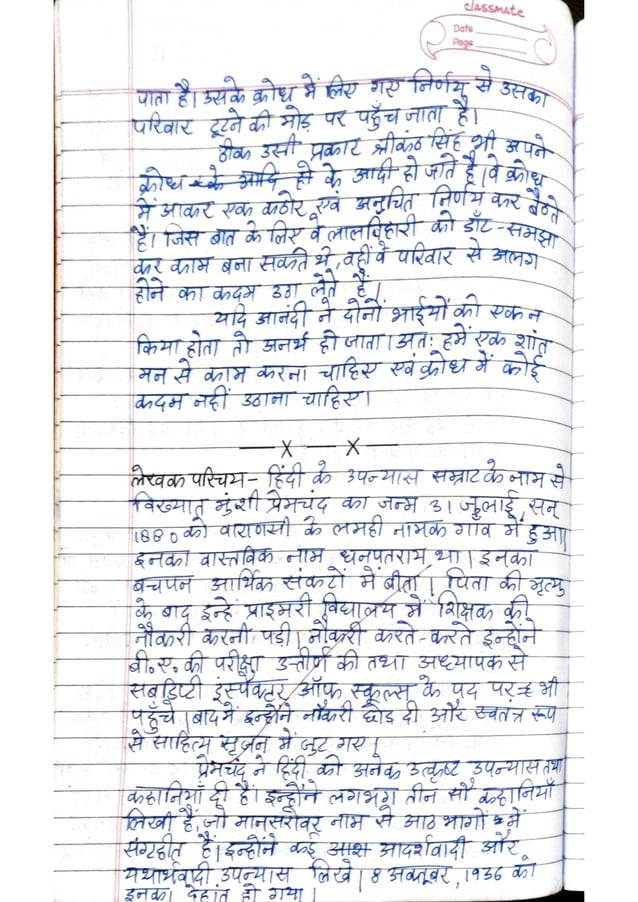 classmate
Date
Page
पाता है। उसके क्रोध में लिए गए निर्णय से उसका
परिवार टूटने की मोड़ पर पहुँच जाता है।
ठीक उसी प्रकार श्रीकंठ सिंह भी अपने
क्रोध के आदि हो के आदी हो जाते हैं। वे क्रोध
में आकर एक कठोर एवं अनुचित निर्णय कर बैठते
हैं। जिस बात के लिए वे लालबिहारी को डाँट-समझा
कर काम बना सकते थे, वहीं वे परिवार से अलग
होने का कदम उठा लेते हैं।
यदि आनंदी ने दोनों भाईयों को एक न
किया होता तो अनर्थ हो जाता। अतः हमें एक शांत
मन से काम करना चाहिए एवं क्रोध में कोई
कदम नहीं उठाना चाहिए।
— X — X —
लेखक परिचय- हिंदी के उपन्यास सम्राट के नाम से
विख्यात मुंशी प्रेमचंद का जन्म 31 जुलाई, सन्
1880 को वाराणसी के लमही नामक गाँव में हुआ।
इनका वास्तविक नाम धनपतराय था। इनका
बचपन आर्थिक संकटो में बीता। पिता की मृत्यु
के बाद इन्हें प्राइमरी विद्यालय में शिक्षक की
नौकरी करनी पड़ी। नौकरी करते-करते इन्होंने
बी.ए. की परीक्षा उत्तीर्ण की तथा अध्यापक से
सबडिप्टी इंस्पेक्टर ऑफ स्कूल्स के पद पर भी
पहुँचे। बाद में इन्होंने नौकरी छोड़ दी और स्वतंत्र रूप
से साहित्य सृजन में जुट गए।
प्रेमचंद ने हिंदी को अनेक उत्कृष्ट उपन्यास तथा
कहानियाँ दी हैं। इन्होंने लगभग तीन सौ कहानियाँ
लिखी हैं, जो मानसरोवर नाम से आठ भागों में
संग्रहीत हैं। इन्होंने कई आश आदर्शवादी और
यथार्थवादी उपन्यास लिखे। 8 अक्तूबर, 1936 को
इनका देहांत हो गया।